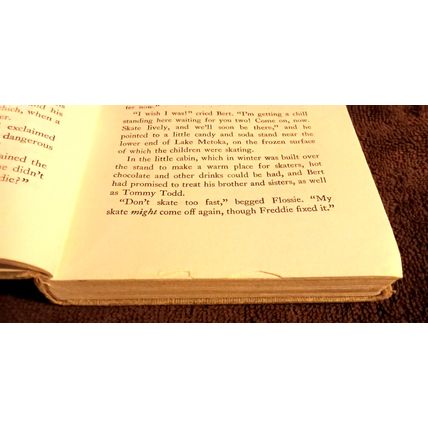 his
which, when a
exclaimed
dangerous
ained the
e didn't
die?"
fer now."
"I wish I was!" cried Bert. "I'm getting a chill
standing here waiting for you two! Come on, now
Skate lively, and we'll soon be there," and he
pointed to a little candy and soda stand near the
lower end of Lake Metoka, on the frozen surface
of which the children were skating.
In the little cabin, which in winter was built over
the stand to make a warm place for skaters, hot
chocolate and other drinks could be had, and Bert
had promised to treat his brother and sisters, as well
as Tommy Todd.
"Don't skate too fast," begged Flossie. "My
skate might come off again, though Freddie fixed it."